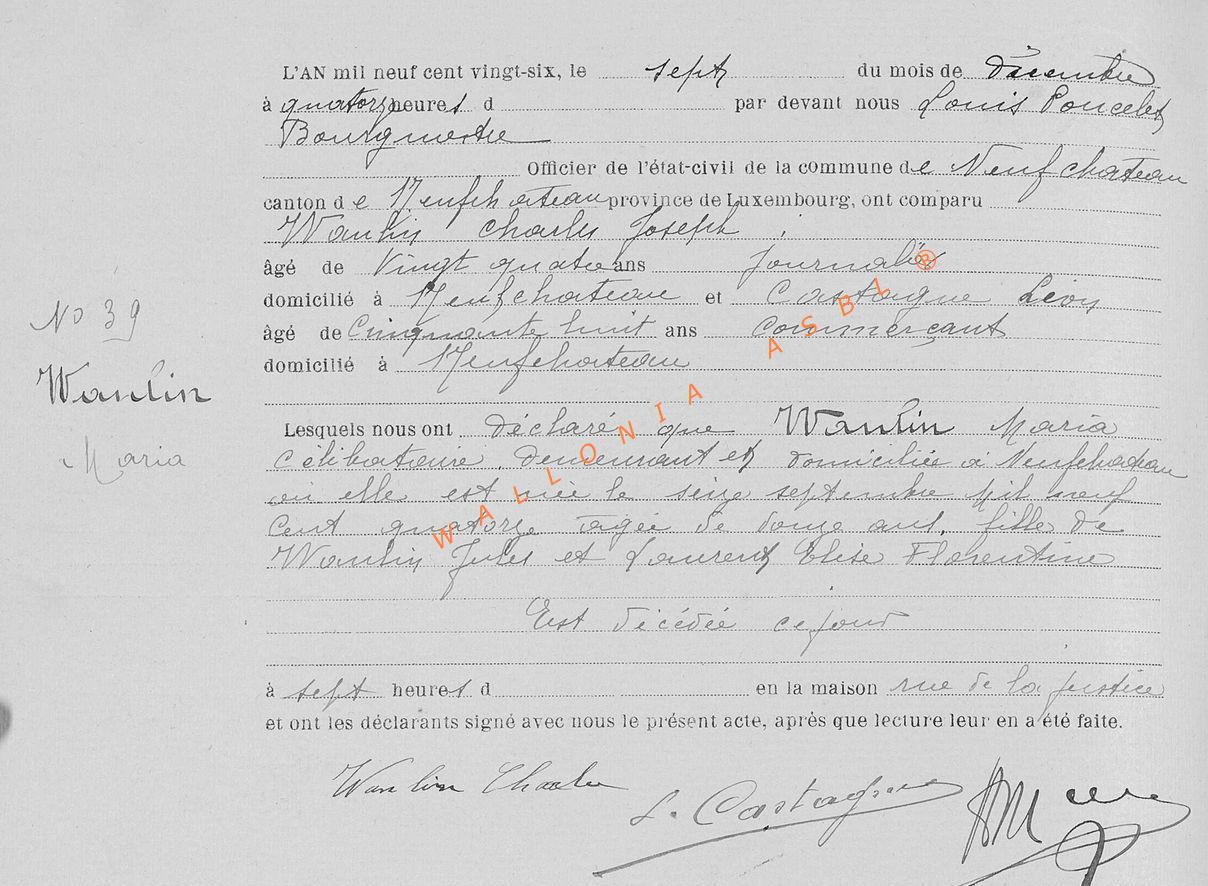 L'AN mil neuf cent vingt-six, le sept du mois de décembre
à quatorze heures d par devant nous Louis Poncelet
Bourgmestre
Officier de l'état-civil de la commune de Neufchateau
canton de Neufchateau province de Luxembourg, ont comparu
Wanlin Charles Joseph,
âgé de vingt quatre ans journalier
domicilié à Neufchateau et Castagne Léon
âgé de Cinquante huit ans Commerçant
domicilié à Neufchateau
No 39
Wanlin
Maria
Lesquels nous ont déclaré que Wanlin Maria
célibataire, demeurant et domiciliée à Neufchateau
où elle est née le seize septembre mil neuf
cent quatorze agée de douze ans, fille de
Wanlin Jules et Laurent Elise Florentine
Est décédée ce jour
à sept heures d en la maison rue de la justice
et ont les déclarants signé avec nous le présent acte, après que lecture leur en a été faite.
Wanlin Charles
L. Castagne
WALLONIA ASBL ®